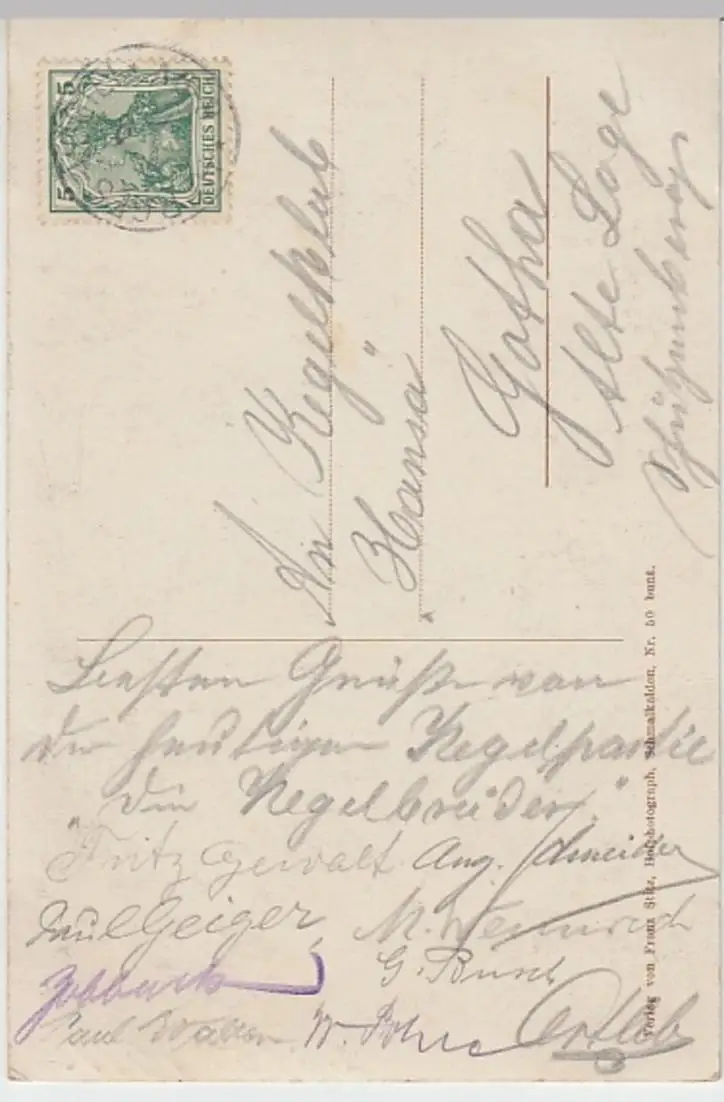 5 5
DEUTSCHES REICH
An Kegelklub
"Hansa
Gotha
Alte Loge
Schützenberg
Verlag von Franz Stitz, Hofphotograph, Schmalkalden, Nr. 50 bunt.
Besten Grüße von
der heutigen Kegelpartie
"Die Kegelbrüder."
Fritz Gewalt Aug. Schneider
Paul Geiger M. Weinrich
G. Busch
Paul
W. Ortleb